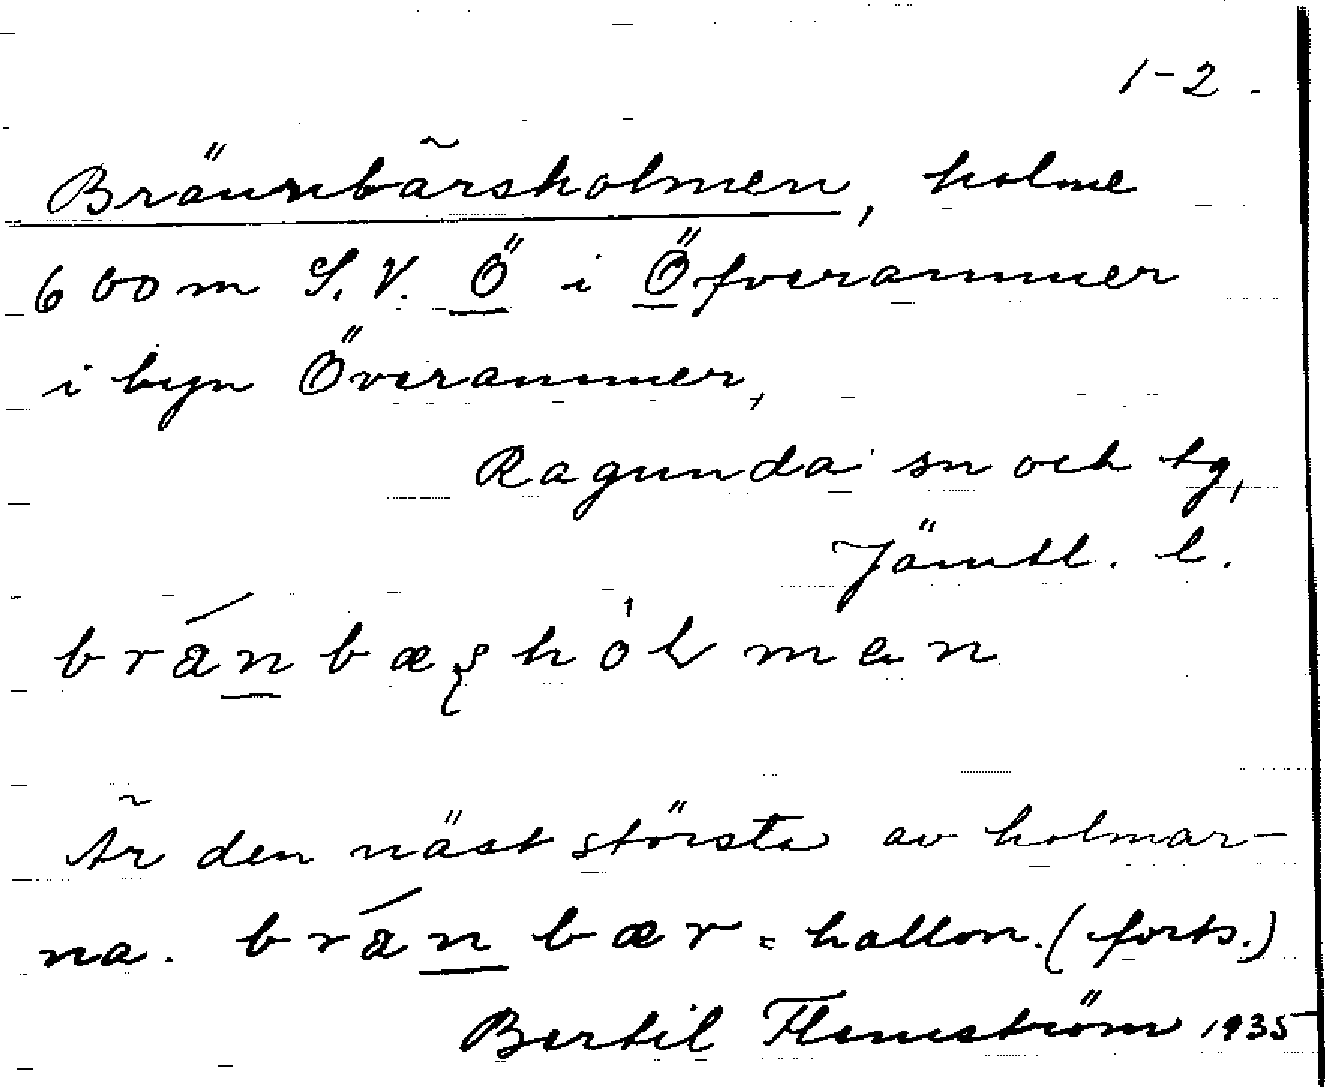 1-2.
Brännbärsholmen, holme
600 m S.V. Ö i Öfverammer
i byn Överammer,
Ragunda sn och tg,
Jämtl. l.
bránbæʂhólman
Är den näst största av holmar-
na. bránbær = hallon. (forts.)
Bertil Flemström 1935